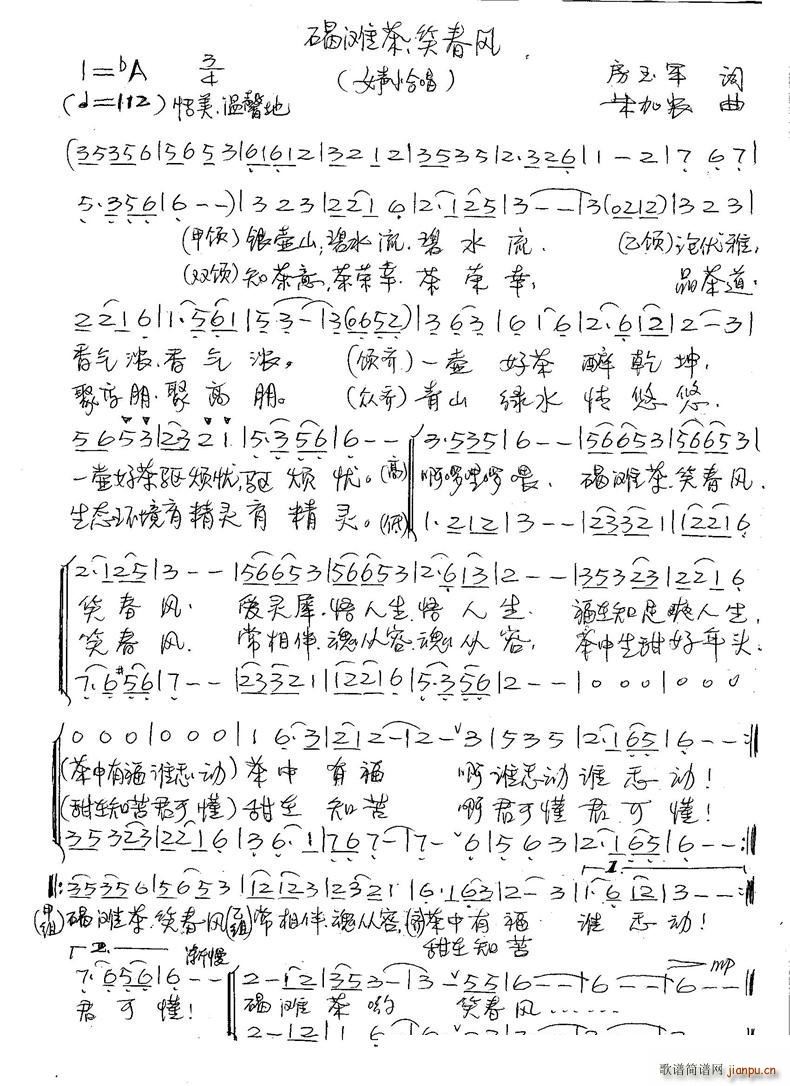 碣滩茶，笑春风
1=ᵇA 3/4 （女声小合唱） 房玉军 词
(♩=112) 恬美、温馨地 加农 曲
(35356|56053|61612|3212|35335|2·326|1-2|7 67|
5·356|6--)|323|2216|2·125|3--|3(0212)|323|
(甲领)银壶山，碧水流，碧水流， (乙领)沱优雅，
(双领)知茶意，茶荣幸，茶荣幸， 品茶道，
2216|1·561|5·3-|3(0652)|363|616|2·612|2-3|
香气浓，香气浓。 (领齐)一壶好茶醉乾坤，
聚高朋，聚高朋。 (众齐)青山绿水情悠悠，
5653|2321|5·356|6--|3·535|6--|56653|566531
一壶好茶驱烦忧，驱烦忧。(高) 啊啰哩啰喂， 碣滩茶，笑春风，
生态环境育精灵，育精灵。(低) 1·212|3--|23321|12216
2·125|3--|56653|56653|2·613|2--|35323|2216
笑春风， 爱灵犀，悟人生，悟人生， 福至知足爽人生，
笑春风， 常相伴，魂从容，魂从容， 茶中生甜好年头，
7·6#56|7--|23321|12216|5·356|2--|000|000
000|000|16·3|212-|2-ᵛ3|535|2·165|6--:‖
(茶中有福谁思动)茶中有福 啊谁思动谁思动！
(甜至知苦君可懂)甜至知苦 啊君可懂君可懂！
35323|2216|36·1|767-|7-ᵛ6|563|2·165|6--:‖
1.
‖:35356|5653|12123|2321|6·163|2-3|1·612|3--:‖
(甲组)碣滩茶，笑春风，(乙组)常相伴，魂从容，(齐)茶中有福 谁思动！
2. 渐慢 甜至知苦
mp
7·656|6--|2-12|353-|3-ᵛ|556-|6--|6--‖
君可懂！ 碣滩茶哟 笑春风……
2-12|16
歌谱简谱网
jianpu.cn